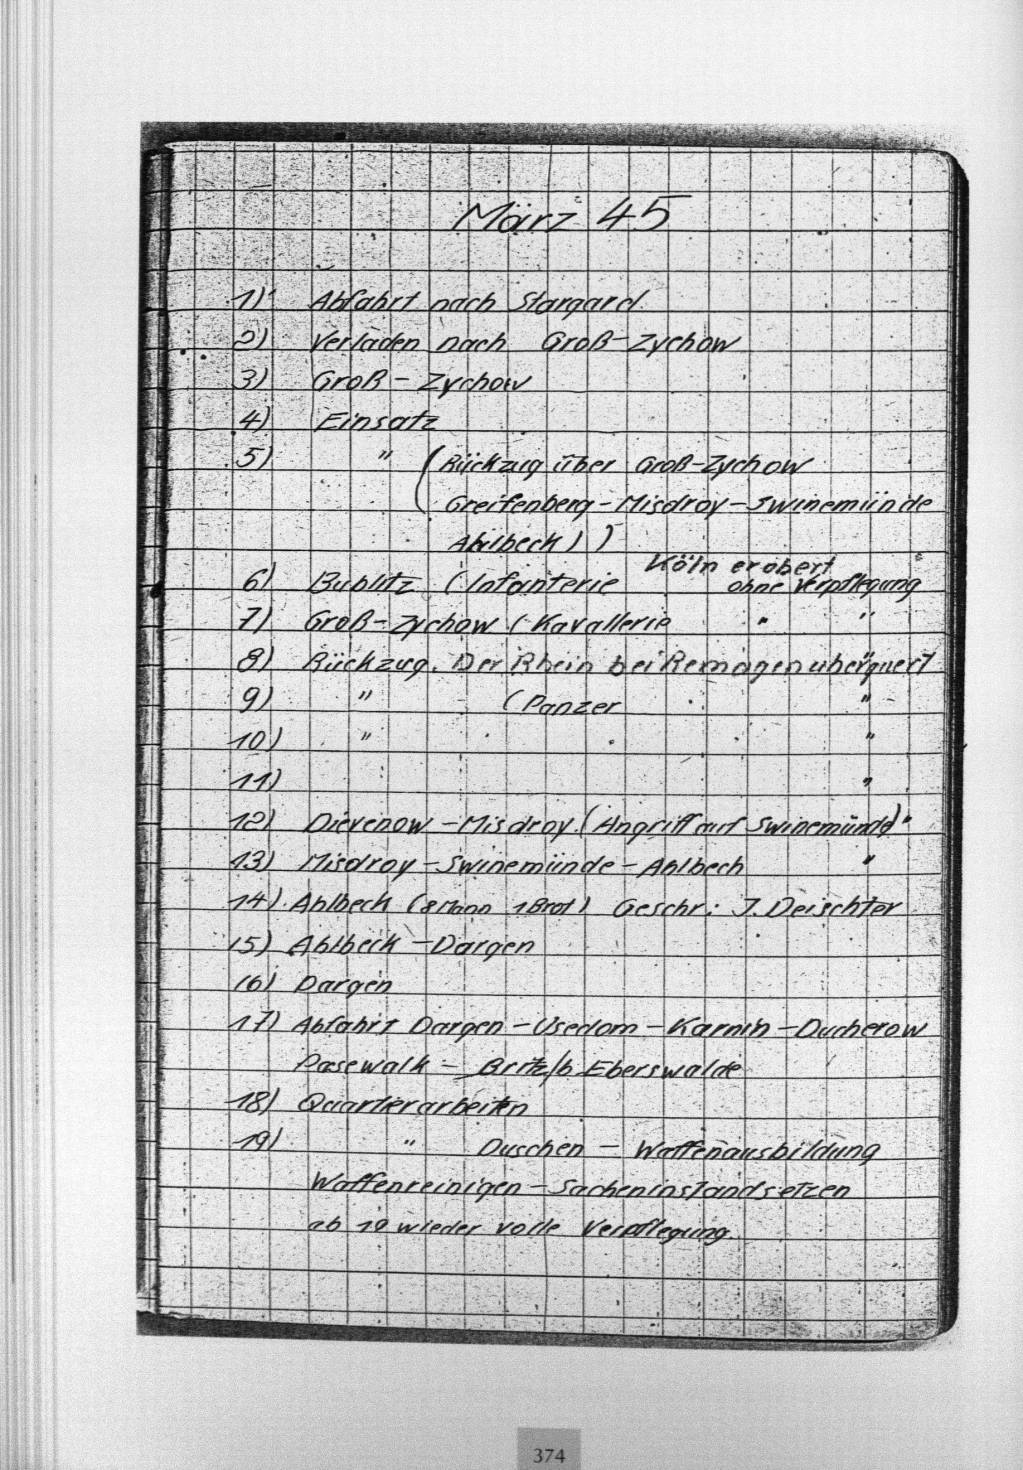 März 45
1) Abfahrt nach Stargard.
2) Verladen nach Groß-Zychow
3) Groß - Zychow
4) Einsatz
5) " (Rückzug über Groß-Zychow
Greifenberg - Misdroy - Swinemünde
Ahlbeck) )
Köln erobert
6) Bublitz (Infanterie ohne Verpflegung
7) Groß-Zychow (Kavallerie " "
8) Rückzug. Der Rhein bei Remagen überquert "
9) " (Panzer "
10) " "
11) "
12) Dievenow - Misdroy. (Angriff auf Swinemünde) "
13) Misdroy - Swinemünde - Ahlbech "
14) Ahlbeck (8 Mann 1 Brot) Geschr: J. Deischter
15) Ahlbeck - Dargen
16) Dargen
17) Abfahrt Dargen - Usedom - Karnin - Ducherow
Pasewalk - Britz/b Eberswalde
18) Quartierarbeiten
19) " Duschen - Waffenausbildung
Waffenreinigen - Sacheninstandsetzen
ab 19 wieder volle Verpflegung.
374